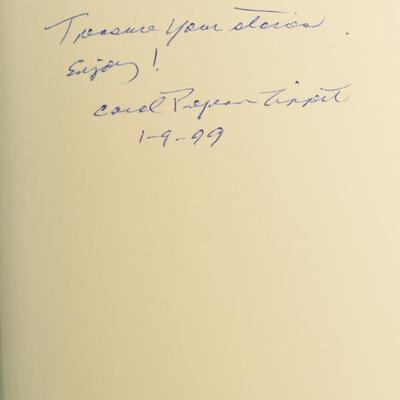 Treasure your stories.
Enjoy!
Carol
1-9-99